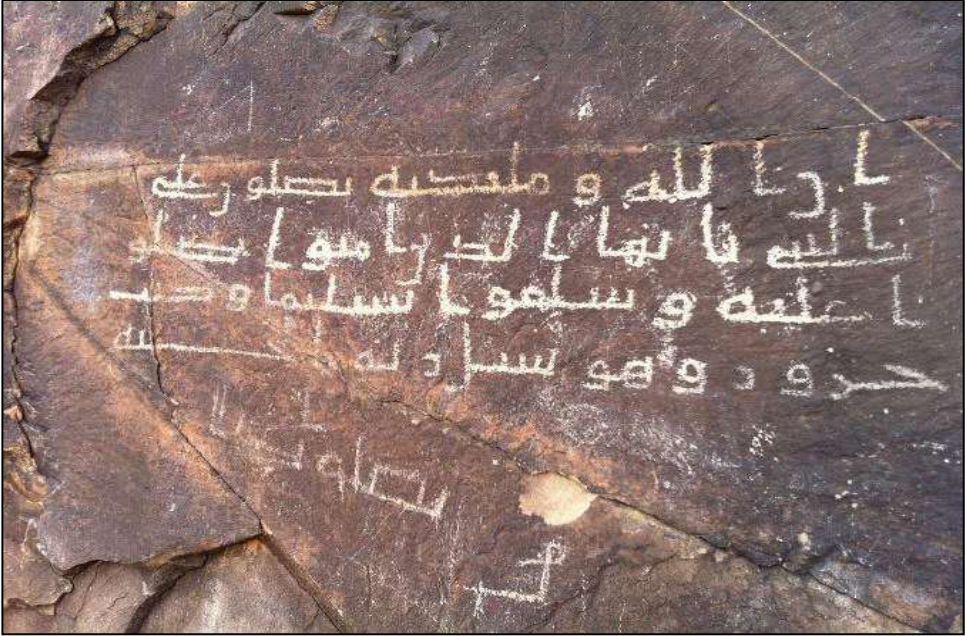 ان الله و ملئكته يصلون علی
النبی يايها الذين امنوا صلو
ا عليه و سلموا تسليما و كتب
وهو يسل ربه
ان ا
يصلو